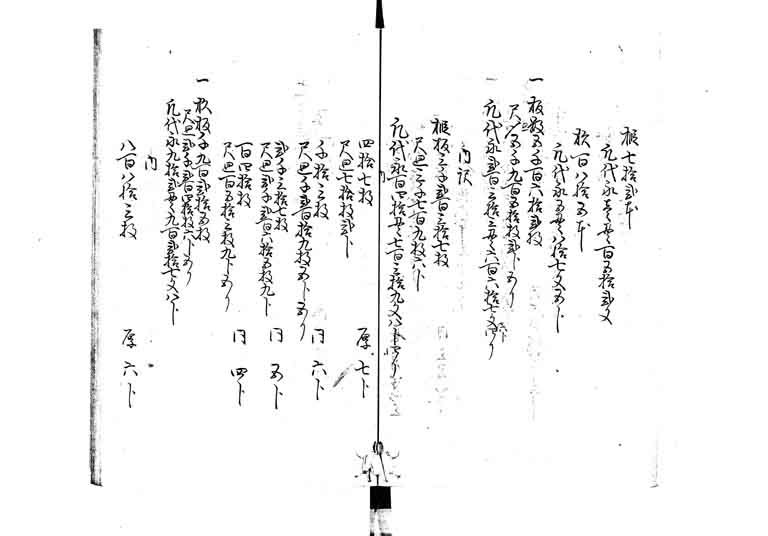 槻七拾弐本
此代永壱貫百五拾弐文
松百八拾五本
此代永五貫八拾七文五分
一 板数五千百六拾弐枚
尺〆五千九百五拾枚弐分五り
此代永弐百三拾三貫六百六拾七文
内訳
槻板三千弐百三拾七枚
尺〆三千七百九枚六分
此代永百四拾貫七百三拾九文八分
四拾七枚 厚七分
尺〆七拾枚弐分
千拾三枚 同六分
尺〆千弐百拾九枚五分五り
弐千三拾七枚 同五分
尺〆弐千弐百六拾五枚九分
百四拾枚 同四分
尺〆百五拾三枚九分五り
一 松板千九百弐拾五枚
尺〆弐千弐百四拾六分五り
此代永九拾弐貫九百弐拾七文八分
内
八百八拾三枚 厚六分